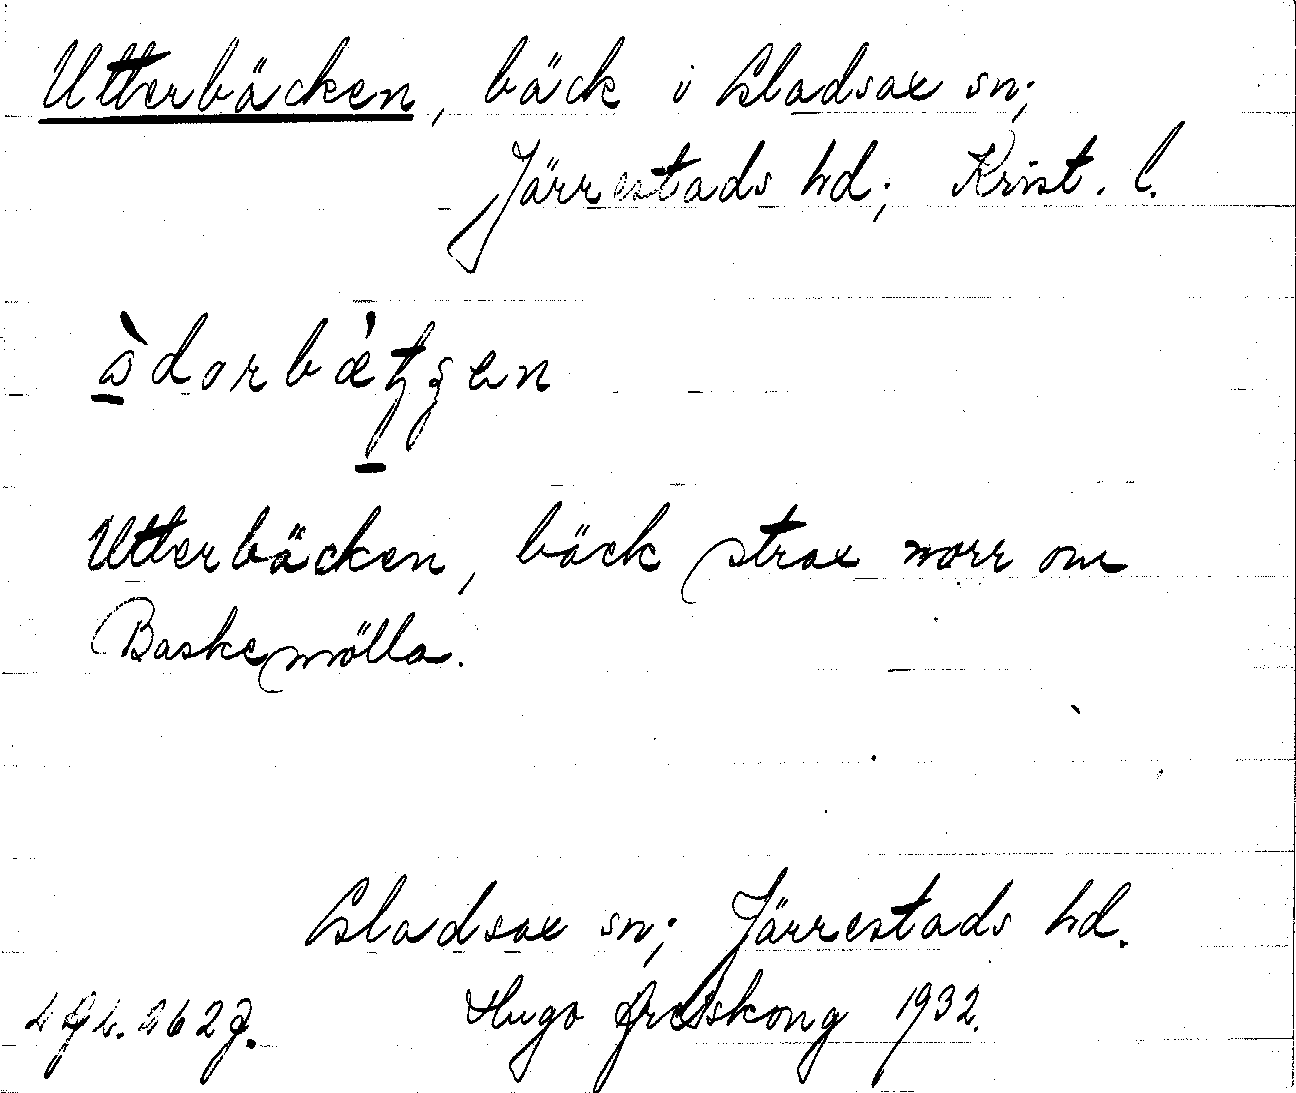 Utterbäcken, bäck i Gladsax sn;
Järrestads hd; Krist. l.
Utterbäcken, bäck strax norr om
Baskemölla.
Gladsax sn; Järrestads hd.
Hugo Areskoug 1932.